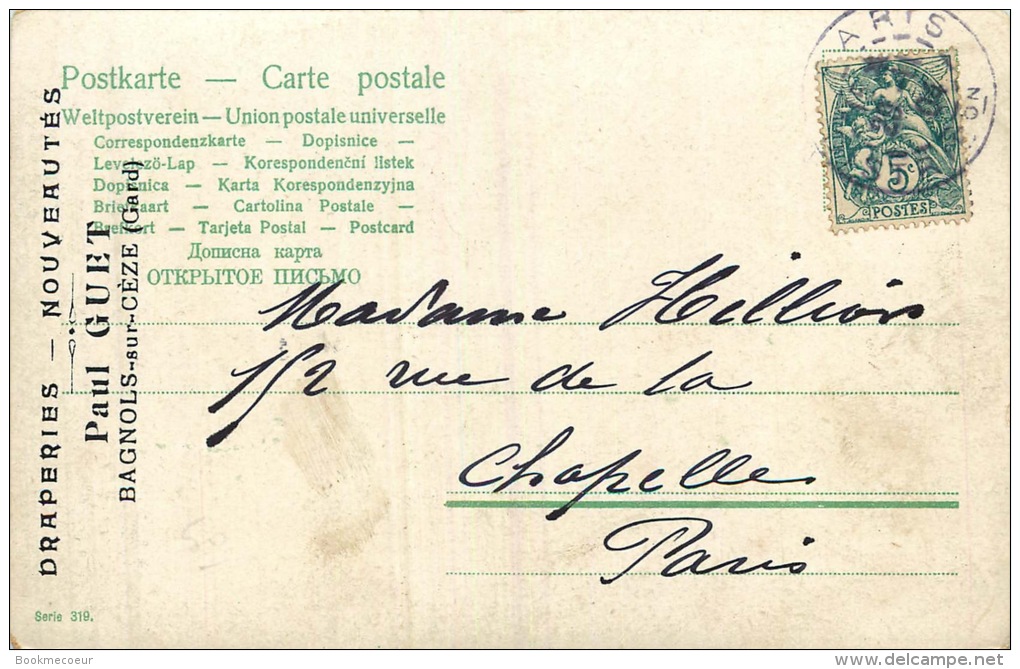 Postkarte — Carte postale
Weltpostverein — Union postale universelle
Correspondenzkarte — Dopisnice —
Levelező-Lap — Korespondenční lístek
Dopisnica — Karta Korespondenzyjna
Briefkaart — Cartolina Postale —
Brefkort — Tarjeta Postal — Postcard
Дописна карта
ОТКРЫТОЕ ПИСЬМО
DRAPERIES — NOUVEAUTÉS
Paul GUET
BAGNOLS-sur-CÈZE (Gard)
PARIS
5c
POSTES
Madame Hillion
152 rue de la
Chapelle
Paris
Serie 319.
Bookmecoeur
delcampe.net